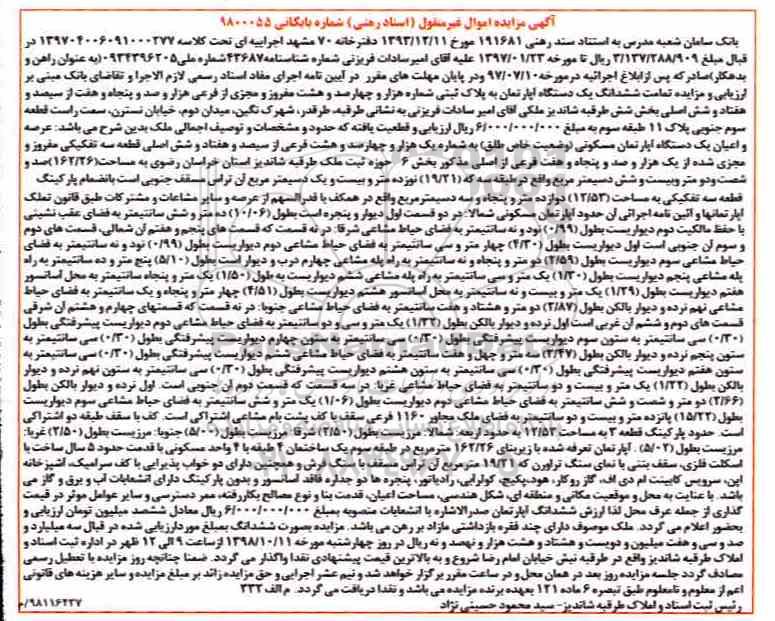 آگهی مزایده اموال غیرمنقول (اسناد رهنی) شماره بایگانی ۹۸۰۰۰۵۵
بانک سامان شعبه مدرس به استناد سند رهنی ۱۹۱۶۸۱ مورخ ۱۳۹۳/۱۲/۱۱ دفترخانه ۷۰ مشهد اجراییه ای تحت کلاسه ۱۳۹۷۰۴۰۰۶۰۹۱۰۰۰۲۷۷ در
قبال مبلغ ۳/۱۳۷/۲۸۸/۹۰۹ ریال تا مورخه ۱۳۹۷/۰۱/۲۳ علیه آقای امیرسادات فریزنی شماره شناسنامه۴۳۶۸۷شماره ملی۰۹۳۴۳۹۶۲۰۵ (به عنوان راهن و
بدهکار)صادر که پس ازابلاغ اجرائیه درمورخه۹۷/۰۷/۱۰ ودر پایان مهلت های مقرر در آیین نامه اجرای مفاد اسناد رسمی لازم الاجرا و تقاضای بانک مبنی بر
ارزیابی و مزایده تمامت ششدانگ یک دستگاه آپارتمان به پلاک ثبتی شماره هزار و چهارصد و هشت مفروز و مجزی از فرعی هزار و صد و پنجاه و هفت از سیصد و
هفتاد و شش اصلی بخش شش طرقبه شاندیز ملکی آقای امیر سادات فریزنی به نشانی طرقبه، طرقدر، شهرک نگین، میدان دوم، خیابان نسترن، سمت راست قطعه
سوم جنوبی پلاک ۱۱ طبقه سوم به مبلغ ۶/۰۰۰/۰۰۰/۰۰۰ ریال ارزیابی و قطعیت یافته که حدود و مشخصات و توصیف اجمالی ملک بدین شرح می باشد: عرصه
و اعیان یک دستگاه آپارتمان مسکونی (وضعیت خاص طلق) به شماره یک هزار و چهارصد و هشت فرعی از سیصد و هفتاد و شش اصلی قطعه سه تفکیکی مفروز و
مجزی شده از یک هزار و صد و پنجاه و هفت فرعی از اصلی مذکور بخش ۶ حوزه ثبت ملک طرقبه شاندیز استان خراسان رضوی به مساحت(۱۶۲/۲۶)صد و
شصت ودو متر وبیست و شش دسیمتر مربع واقع در طبقه سه که (۱۹/۲۱) نوزده متر و بیست و یک دسیمتر مربع آن تراس مسقف جنوبی است بانضمام پارکینگ
قطعه سه تفکیکی به مساحت (۱۲/۵۳) دوازده متر و پنجاه و سه دسیمترمربع واقع در همکف با قدرالسهم از عرصه و سایر مشاعات و مشترکات طبق قانون تملک
آپارتمانها و آئین نامه اجرائی آن حدود آپارتمان مسکونی شمالا: در دو قسمت اول دیوار و پنجره است بطول (۱۰/۰۶) ده متر و شش سانتیمتر به فضای عقب نشینی
با حفظ مالکیت دوم دیواریست بطول (۰/۹۹) نود و نه سانتیمتر به فضای حیاط مشاعی شرقا: در نه قسمت که قسمت های پنجم و هفتم آن شمالی، قسمت های دوم
و سوم آن جنوبی است اول دیواریست بطول (۴/۳۰) چهار متر و سی سانتیمتر به فضای حیاط مشاعی دوم دیواریست بطول (۰/۹۹) نود و نه سانتیمتر به فضای
حیاط مشاعی سوم دیواریست بطول (۲/۵۹) دو متر و پنجاه و نه سانتیمتر به راه پله مشاعی چهارم درب و دیوار است بطول (۵/۱۰) پنج متر و ده سانتیمتر به راه
پله مشاعی پنجم دیواریست بطول (۱/۳۰) یک متر و سی سانتیمتر به راه پله مشاعی ششم دیواریست به طول (۱/۵۰) یک متر و پنجاه سانتیمتر به محل آسانسور
هفتم دیواریست بطول (۱/۲۹) یک متر و بیست و نه سانتیمتر به محل آسانسور هشتم دیواریست بطول (۴/۵۱) چهار متر و پنجاه و یک سانتیمتر به فضای حیاط
مشاعی نهم نرده و دیوار بالکن بطول (۲/۸۷) دو متر و هشتاد و هفت سانتیمتر به فضای حیاط مشاعی جنوبا: در نه قسمت که قسمتهای چهارم و هشتم آن شرقی
قسمت های دوم و ششم آن غربی است اول نرده و دیوار بالکن بطول (۱/۳۲) یک متر و سی و دو سانتیمتر به فضای حیاط مشاعی دوم دیواریست پیشرفتگی بطول
(۰/۳۰) سی سانتیمتر به ستون سوم دیواریست پیشرفتگی بطول (۰/۳۰) سی سانتیمتر به ستون چهارم دیواریست پیشرفتگی بطول (۰/۳۰) سی سانتیمتر به
ستون پنجم نرده و دیوار بالکن بطول (۳/۴۷) سه متر و چهل و هفت سانتیمتر به فضای حیاط مشاعی ششم دیواریست پیشرفتگی بطول (۰/۳۰) سی سانتیمتر به
ستون هفتم دیواریست پیشرفتگی بطول (۰/۳۰) سی سانتیمتر به ستون هشتم دیواریست پیشرفتگی بطول (۰/۳۰) سی سانتیمتر به ستون نهم نرده و دیوار
بالکن بطول (۱/۲۲) یک متر و بیست و دو سانتیمتر به فضای حیاط مشاعی غربا: در سه قسمت که قسمت دوم آن جنوبی است. اول نرده و دیوار بالکن بطول
(۲/۶۶) دو متر و شصت و شش سانتیمتر به فضای حیاط مشاعی دوم دیواریست بطول (۱/۰۶) یک متر و شش سانتیمتر به فضای حیاط مشاعی سوم دیواریست
بطول (۱۵/۲۲) پانزده متر و بیست و دو سانتیمتر به فضای ملک مجاور ۱۱۶۰ فرعی سقف با کف پشت بام مشاعی اشتراکی است. کف با سقف طبقه دو اشتراکی
است. حدود پارکینگ قطعه ۳ به مساحت ۱۲/۵۳ به حدود اربعه: شمالا: مرزیست بطول (۲/۵۰) شرقا: مرزیست بطول (۵/۰۰) جنوبا: مرزیست بطول (۲/۵۰) غربا:
مرزیست بطول (۵/۰۲) . آپارتمان تعرفه شده با زیربنای ۱۶۲/۲۶ مترمربع در طبقه سوم یک ساختمان ۴ طبقه با ۴ واحد مسکونی با قدمت حدود ۵ سال ساخت با
اسکلت فلزی، سقف بتنی با نمای سنگ تراورتن که ۱۹/۲۱ مترمربع آن تراس فرش و همچنین دارای دو خواب پذیرایی با کف سرامیک، آشپزخانه
اپن، سرویس کابینت ام دی اف، گاز رو کار، هود،پکیج، کولرآبی، رادیاتور، پنجره ها دو جداره فاقد آسانسور و بدون پارکینگ دارای انشعابات آب و برق و گاز می
باشد. با عنایت به محل و موقعیت مکانی و منطقه ای، شکل هندسی، مساحت اعیان، قدمت بنا و نوع مصالح بکاررفته، ممر دسترسی و سایر عوامل موثر در قیمت
گذاری از جمله عرف محل لذا ارزش ششدانگ آپارتمان صدرالاشاره با انشعابات منصوبه بمبلغ ۶/۰۰۰/۰۰۰/۰۰۰ ریال معادل ششصد میلیون تومان ارزیابی و
بحضور اعلام می گردد. ملک موصوف دارای چند فقره بازداشتی مازاد بر رهن می باشد. مزایده بصورت ششدانگ بمبلغ موردارزیابی شده در قبال سه میلیارد و
صد و سی و هفت میلیون و دویست و هشتاد و هشت هزار و نهصد و نه ریال در روز چهارشنبه مورخه ۱۳۹۸/۱۰/۱۱ ازساعت ۹ الی ۱۲ ظهر در اداره ثبت اسناد و
املاک طرقبه شاندیز واقع در طرقبه نبش خیابان امام رضا شروع و به بالاترین قیمت پیشنهادی نقدا واگذار می گردد. ضمنا چنانچه روز مزایده با تعطیل رسمی
مصادف گردد جلسه مزایده روز بعد در همان محل و در ساعت مقرر برگزار خواهد شد و نیم عشر اجرایی و حق مزایده زائد بر مبلغ مزایده و سایر هزینه های قانونی
اعم از معلوم و نامعلوم طبق تبصره ۶ ماده ۱۲۱ بعهده برنده مزایده می باشد و نقدا دریافت می گردد. م الف ۳۳۲
رئیس ثبت اسناد و املاک طرقبه شاندیز- سید محمود حسینی نژاد
۹۸۱۱۶۲۳۷/م